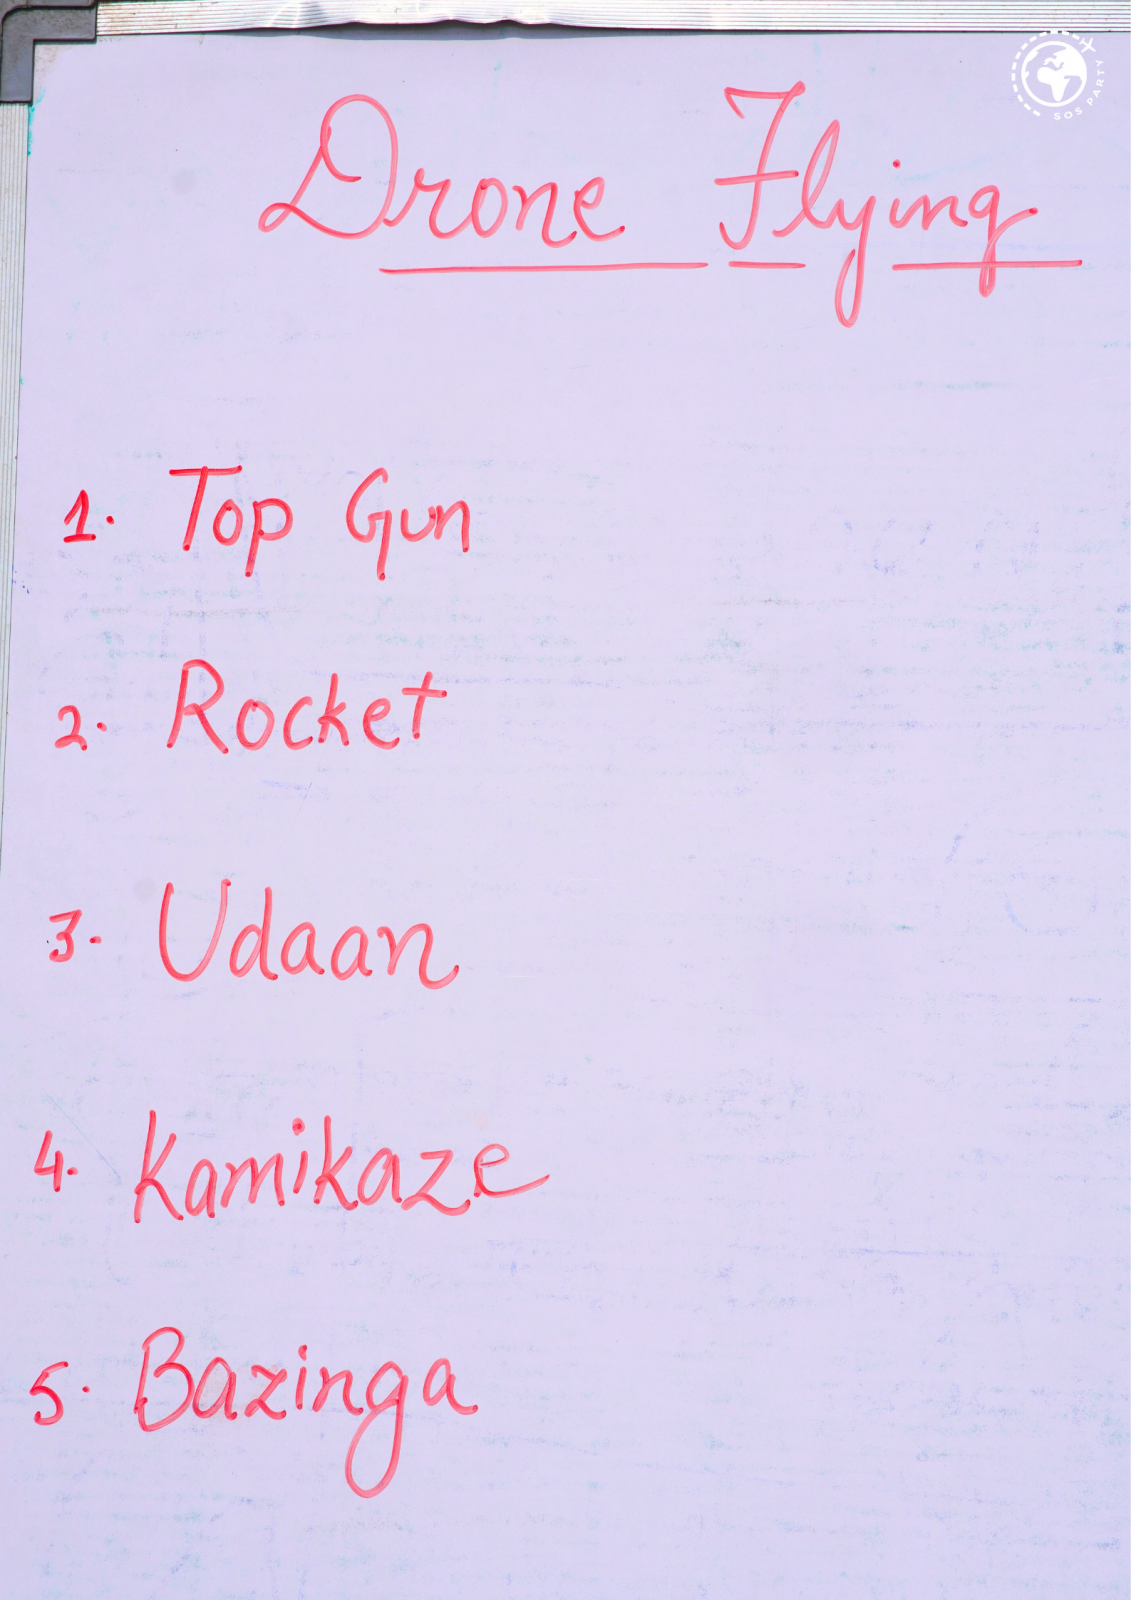 SOS PARTY
Drone Flying
1. Top Gun
2. Rocket
3. Udaan
4. Kamikaze
5. Bazinga